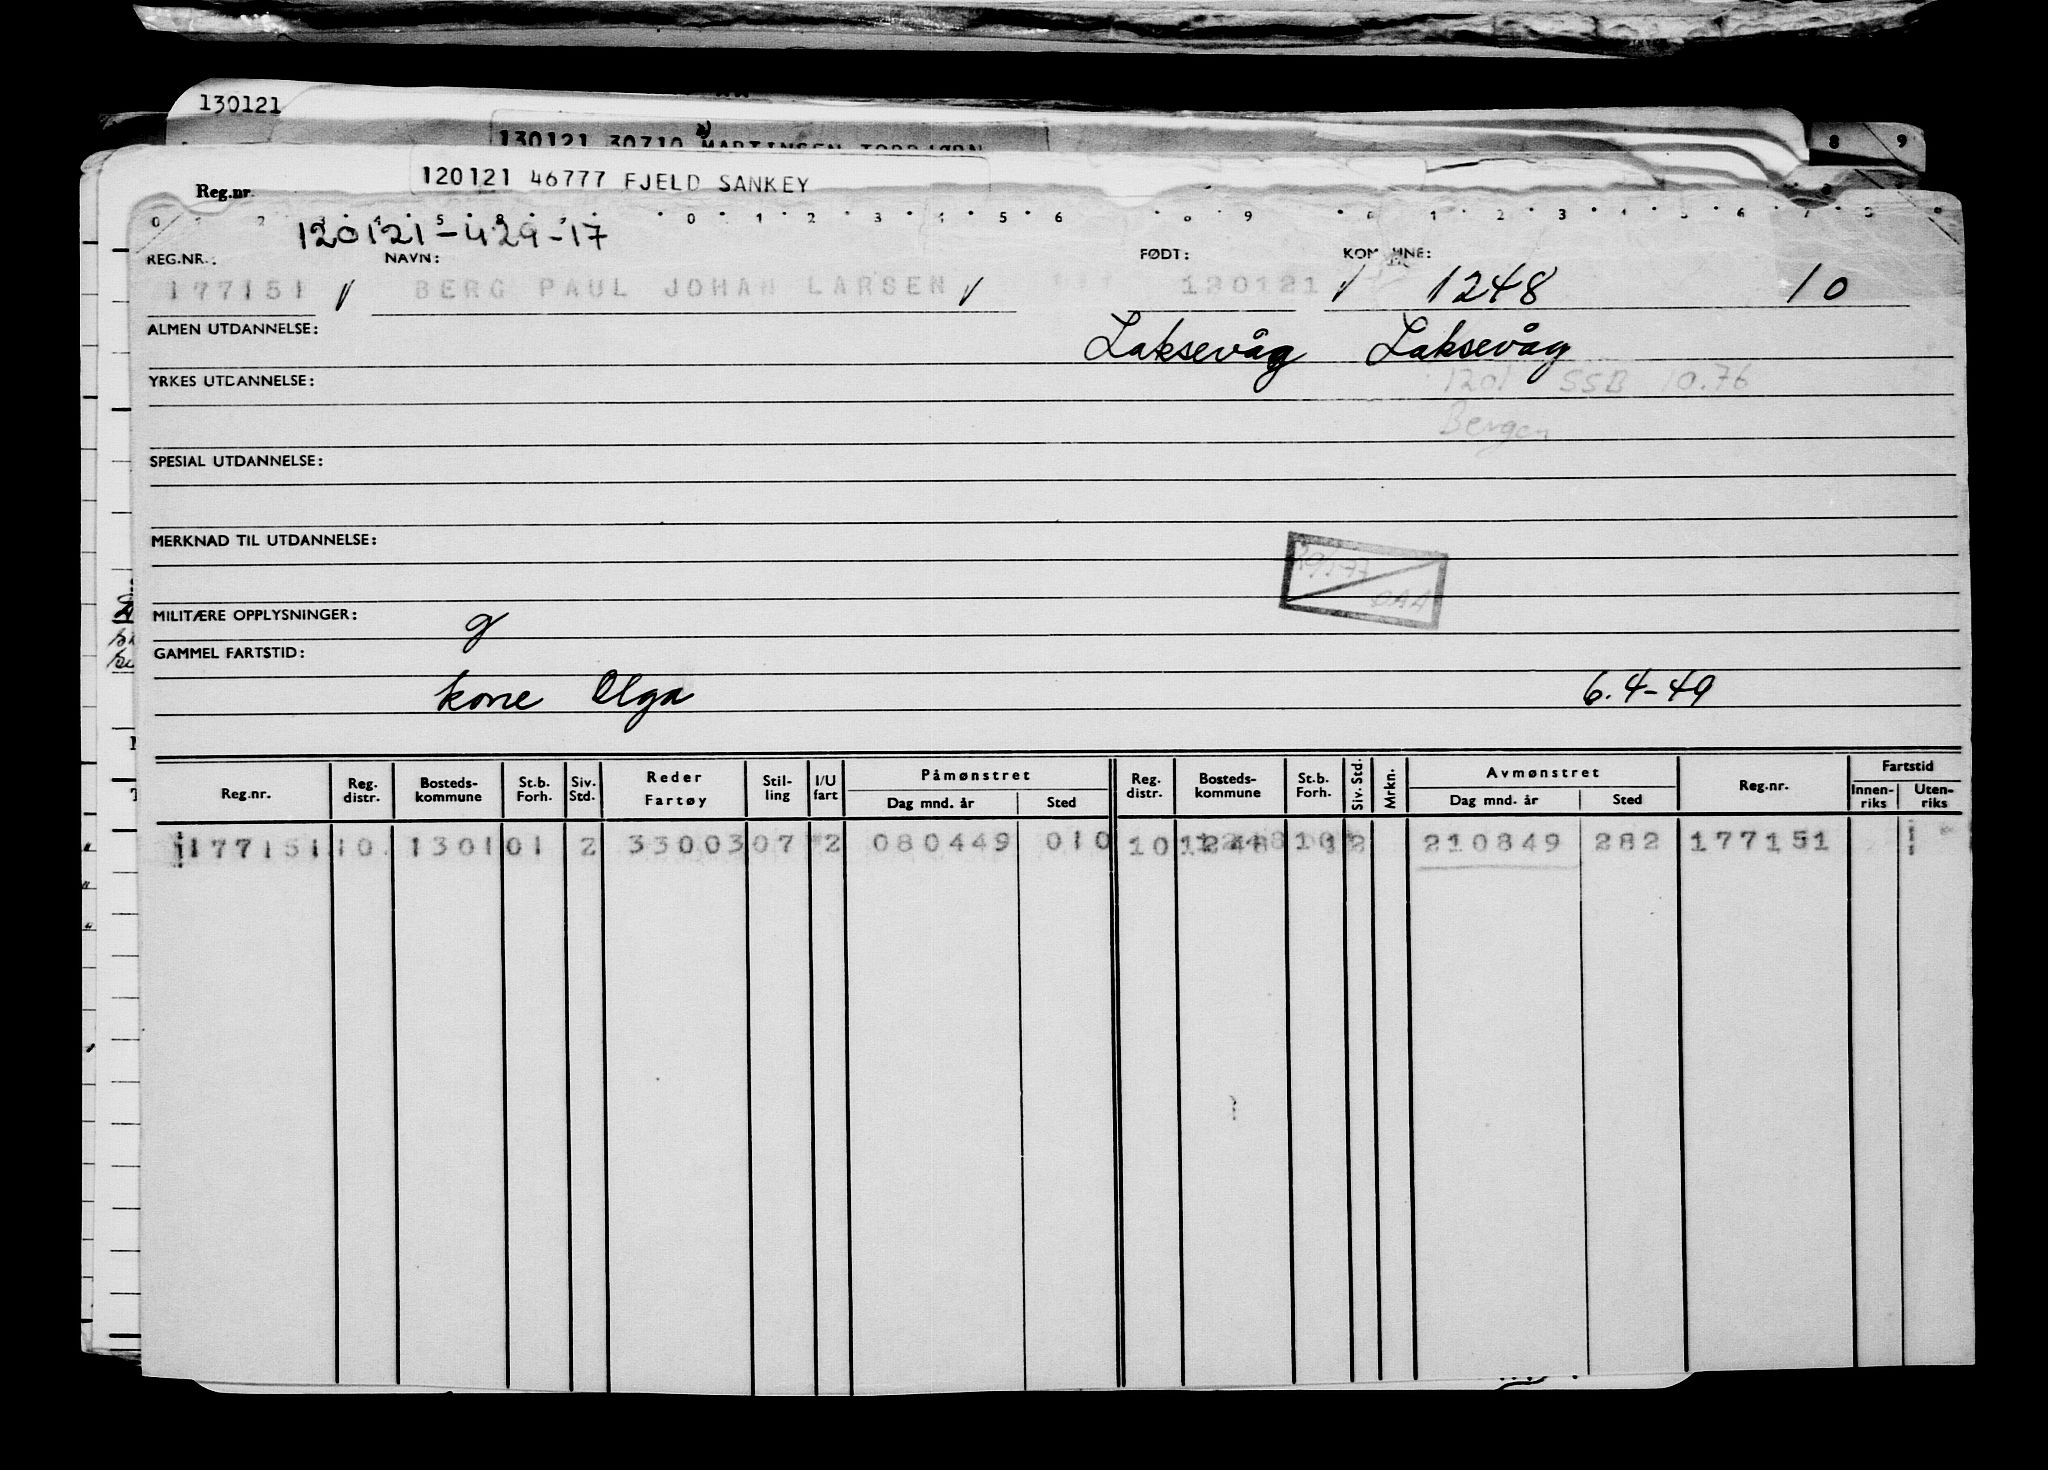 130121
130121 30710 MARTINSEN TORBJØRN
120121 46777 FJELD SANKEY
Reg.nr.
120121-429-17
REG.NR.: NAVN: FØDT: KOMMUNE:
177151 BERG PAUL JOHAN LARSEN 120121 1248 10
ALMEN UTDANNELSE: Laksevåg Laksevåg
YRKES UTDANNELSE: 1201 SSB 10.76
Bergen
SPESIAL UTDANNELSE:
MERKNAD TIL UTDANNELSE:
MILITÆRE OPPLYSNINGER: g
GAMMEL FARTSTID:
kone Olga 6.4-49
Reg.nr. Reg. distr. Bosteds-kommune St.b. Forh. Siv. Std. Reder Fartøy Stil-ling I/U fart Påmønstret Dag mnd. år Sted Reg. distr. Bosteds-kommune St.b. Forh. Siv. Std. Mrkn. Avmønstret Dag mnd. år Sted Reg.nr. Fartstid Innen-riks Uten-riks
177151 10 1301 01 2 33003 07 2 080449 010 10 1248 2 210849 282 177151